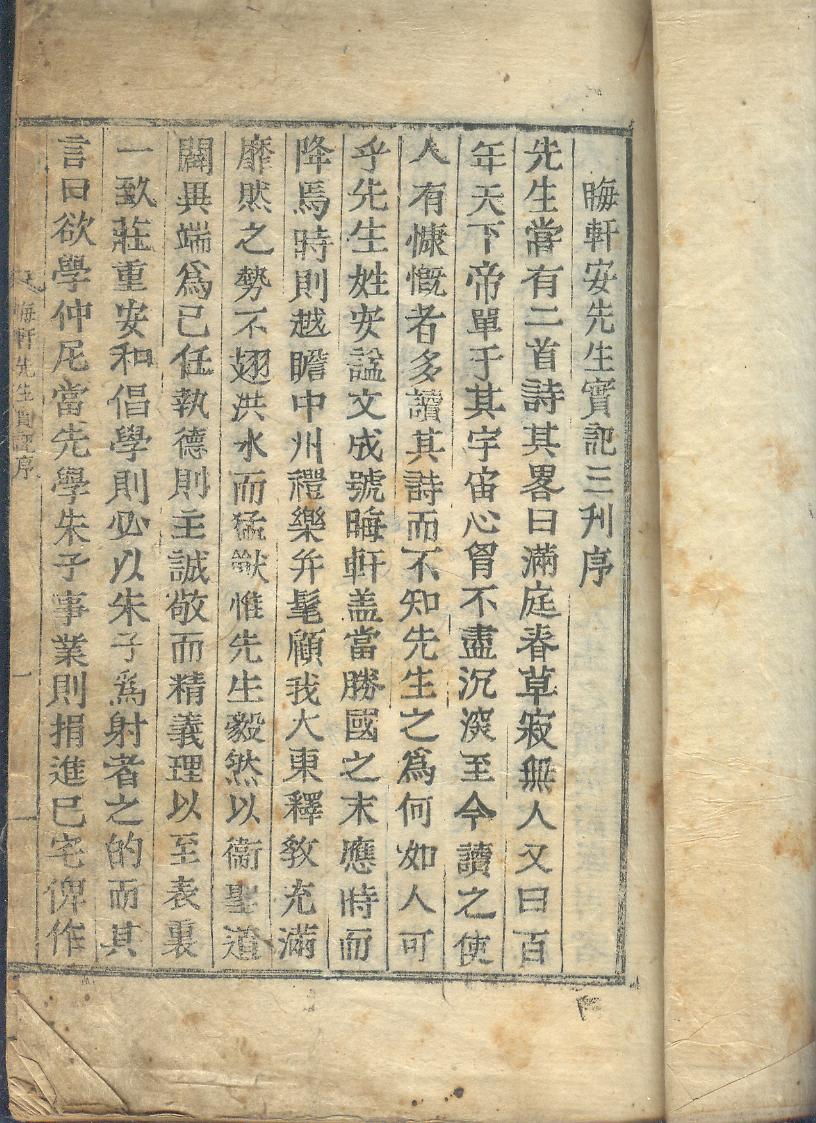 晦軒安先生實記三刋序
先生嘗有二首詩其畧曰滿庭春草寂無人又曰百
年天下帝單于其宇宙心胷不盡沉深至今讀之使
人有慷慨者多讀其詩而不知先生之爲何如人可
乎先生姓安諡文成號晦軒盖當勝國之末應時而
降焉時則越瞻中州禮樂弁髦顧我大東釋敎充滿
靡然之勢不翅洪水而猛獸惟先生毅然以衞聖道
闢異端爲己任執德則主誠敬而精義理以至表裏
一致莊重安和倡學則必以朱子爲射者之的而其
言曰欲學仲尼當先學朱子事業則捐進已宅俾作
晦軒先生實記序
一